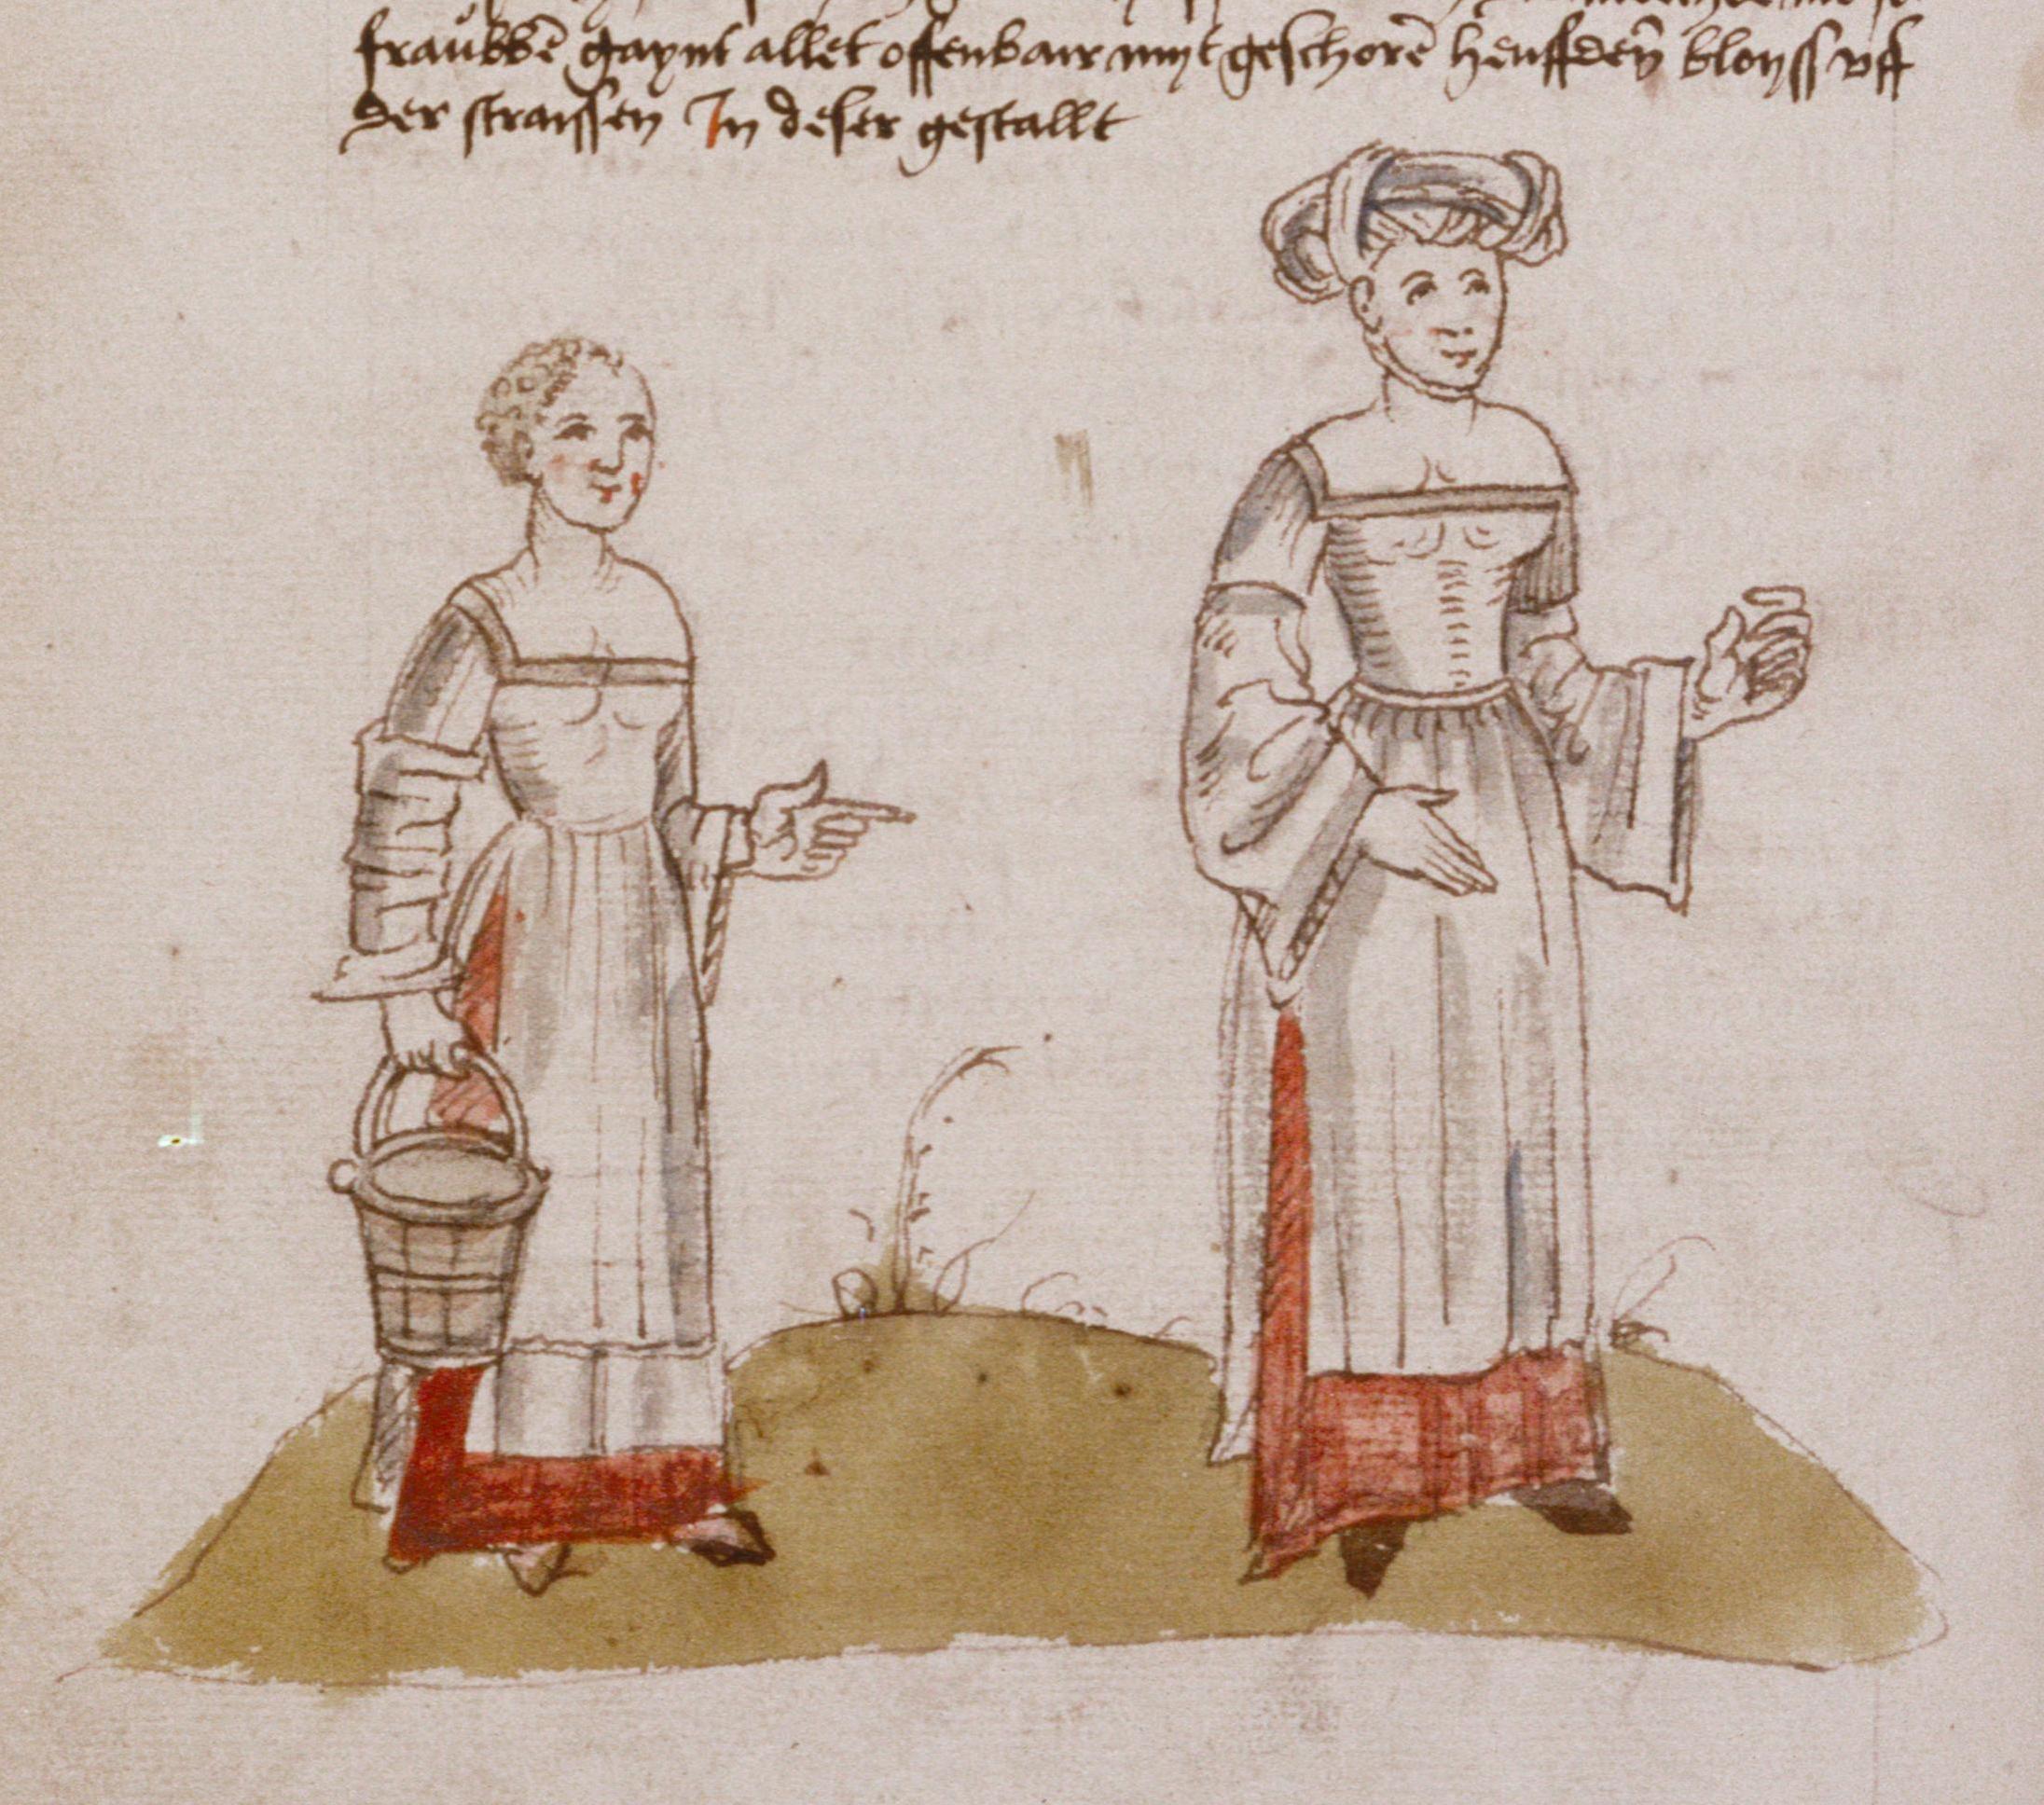 fraubbē gaynt allet offenbair myt geschorē heuffdeȳ bloyss vff
der straissen In deser gestallt